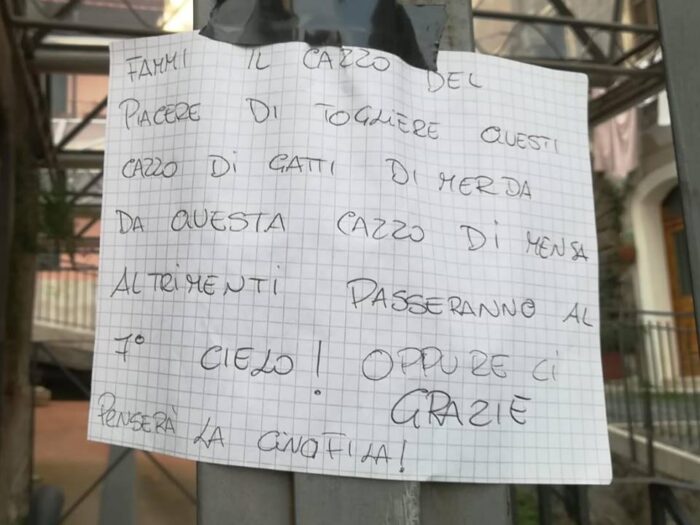 FAMMI IL CAZZO DEL
PIACERE DI TOGLIERE QUESTI
CAZZO Di GATTI Di MERDA
DA QUESTA CAZZO Di MENSA
ALTRIMENTI PASSERANNO AL
7° CIELO! OPPURE Ci
PENSERÀ LA CiNOFiLA!
GRAZIE